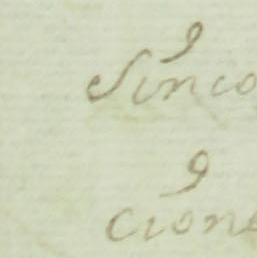 Sinco
cione